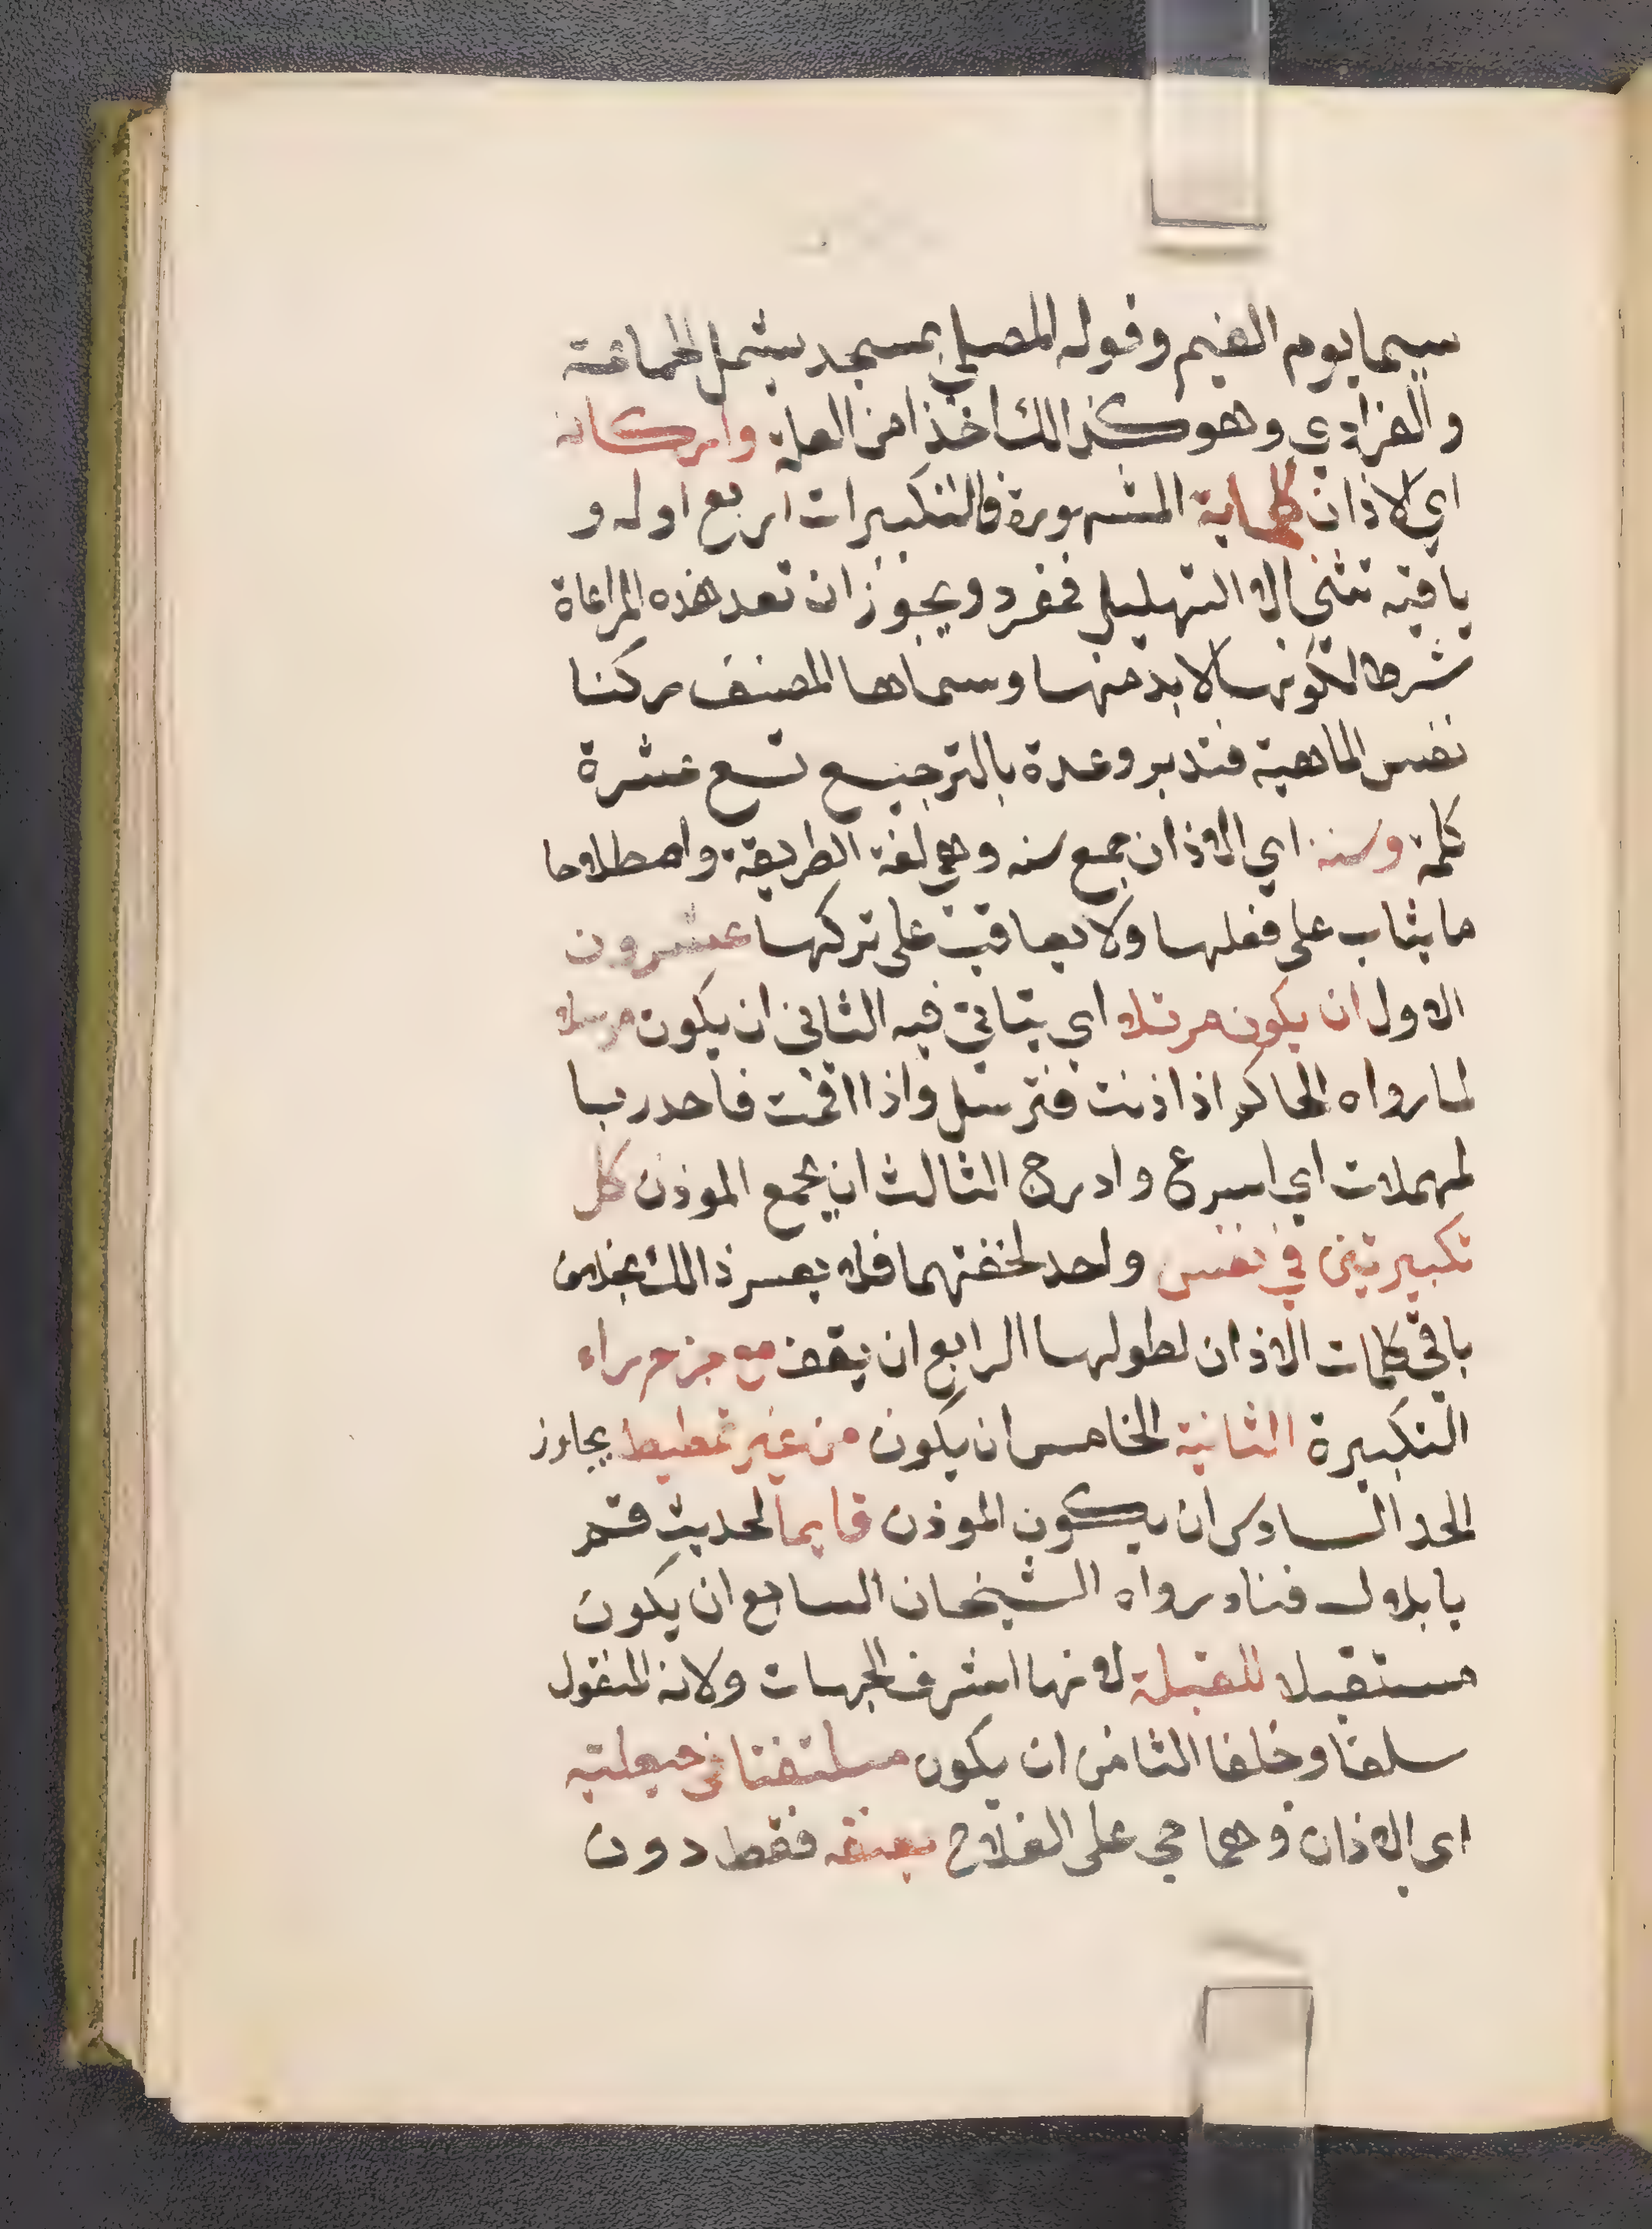 سيما يوم الغيم وقوله المصلي بمسجد يشمل الجماعة
والفرادي وهو كذالك اخذا من العلة واركانه
اي الاذان كلماته المشهورة فالتكبيرات اربع اوله و
باقيه تثنى الا التهليل فمفرد ويجوز ان تعد هذه المراعاة
شرطا لكونها لابد منها وسماها المصنف ركنا
نفس الماهية فتدبر وعدة بالترجيع تسع عشرة
كلمة وسننه اي الاذان جمع سنه وهي لغة الطريقة واصطلاحا
ما يثاب على فعلها ولا يعاقب على تركها عشرون
الاول ان يكون مرتلا اي يتاني فيه الثاني ان يكون مرسلا
لما رواه الحاكم اذا اذنت فترسل واذا اقمت فاحدر بها
لمهملات اي اسرع وادرج الثالث ان يجمع الموذن كل
تكبيرتين في نفس واحد لخفتهما فلا يعسر ذالك بخلاف
باقي كلمات الاذان لطولها الرابع ان يقف مع جزم راء
التكبيرة الثانية الخامس ان يكون من غير تمطيط يجاوز
الحد السادس ان يكون الموذن قايما لحديث قم
يا بلال فناد رواه الشيخان السابع ان يكون
مستقبلا للقبلة لانها اشرف الجهات ولانه المنقول
سلفا وخلفا الثامن ان يكون ملتفتا في حيعلتيه
اي الاذان وهما حي على الفلاح بعنقه فقط دون